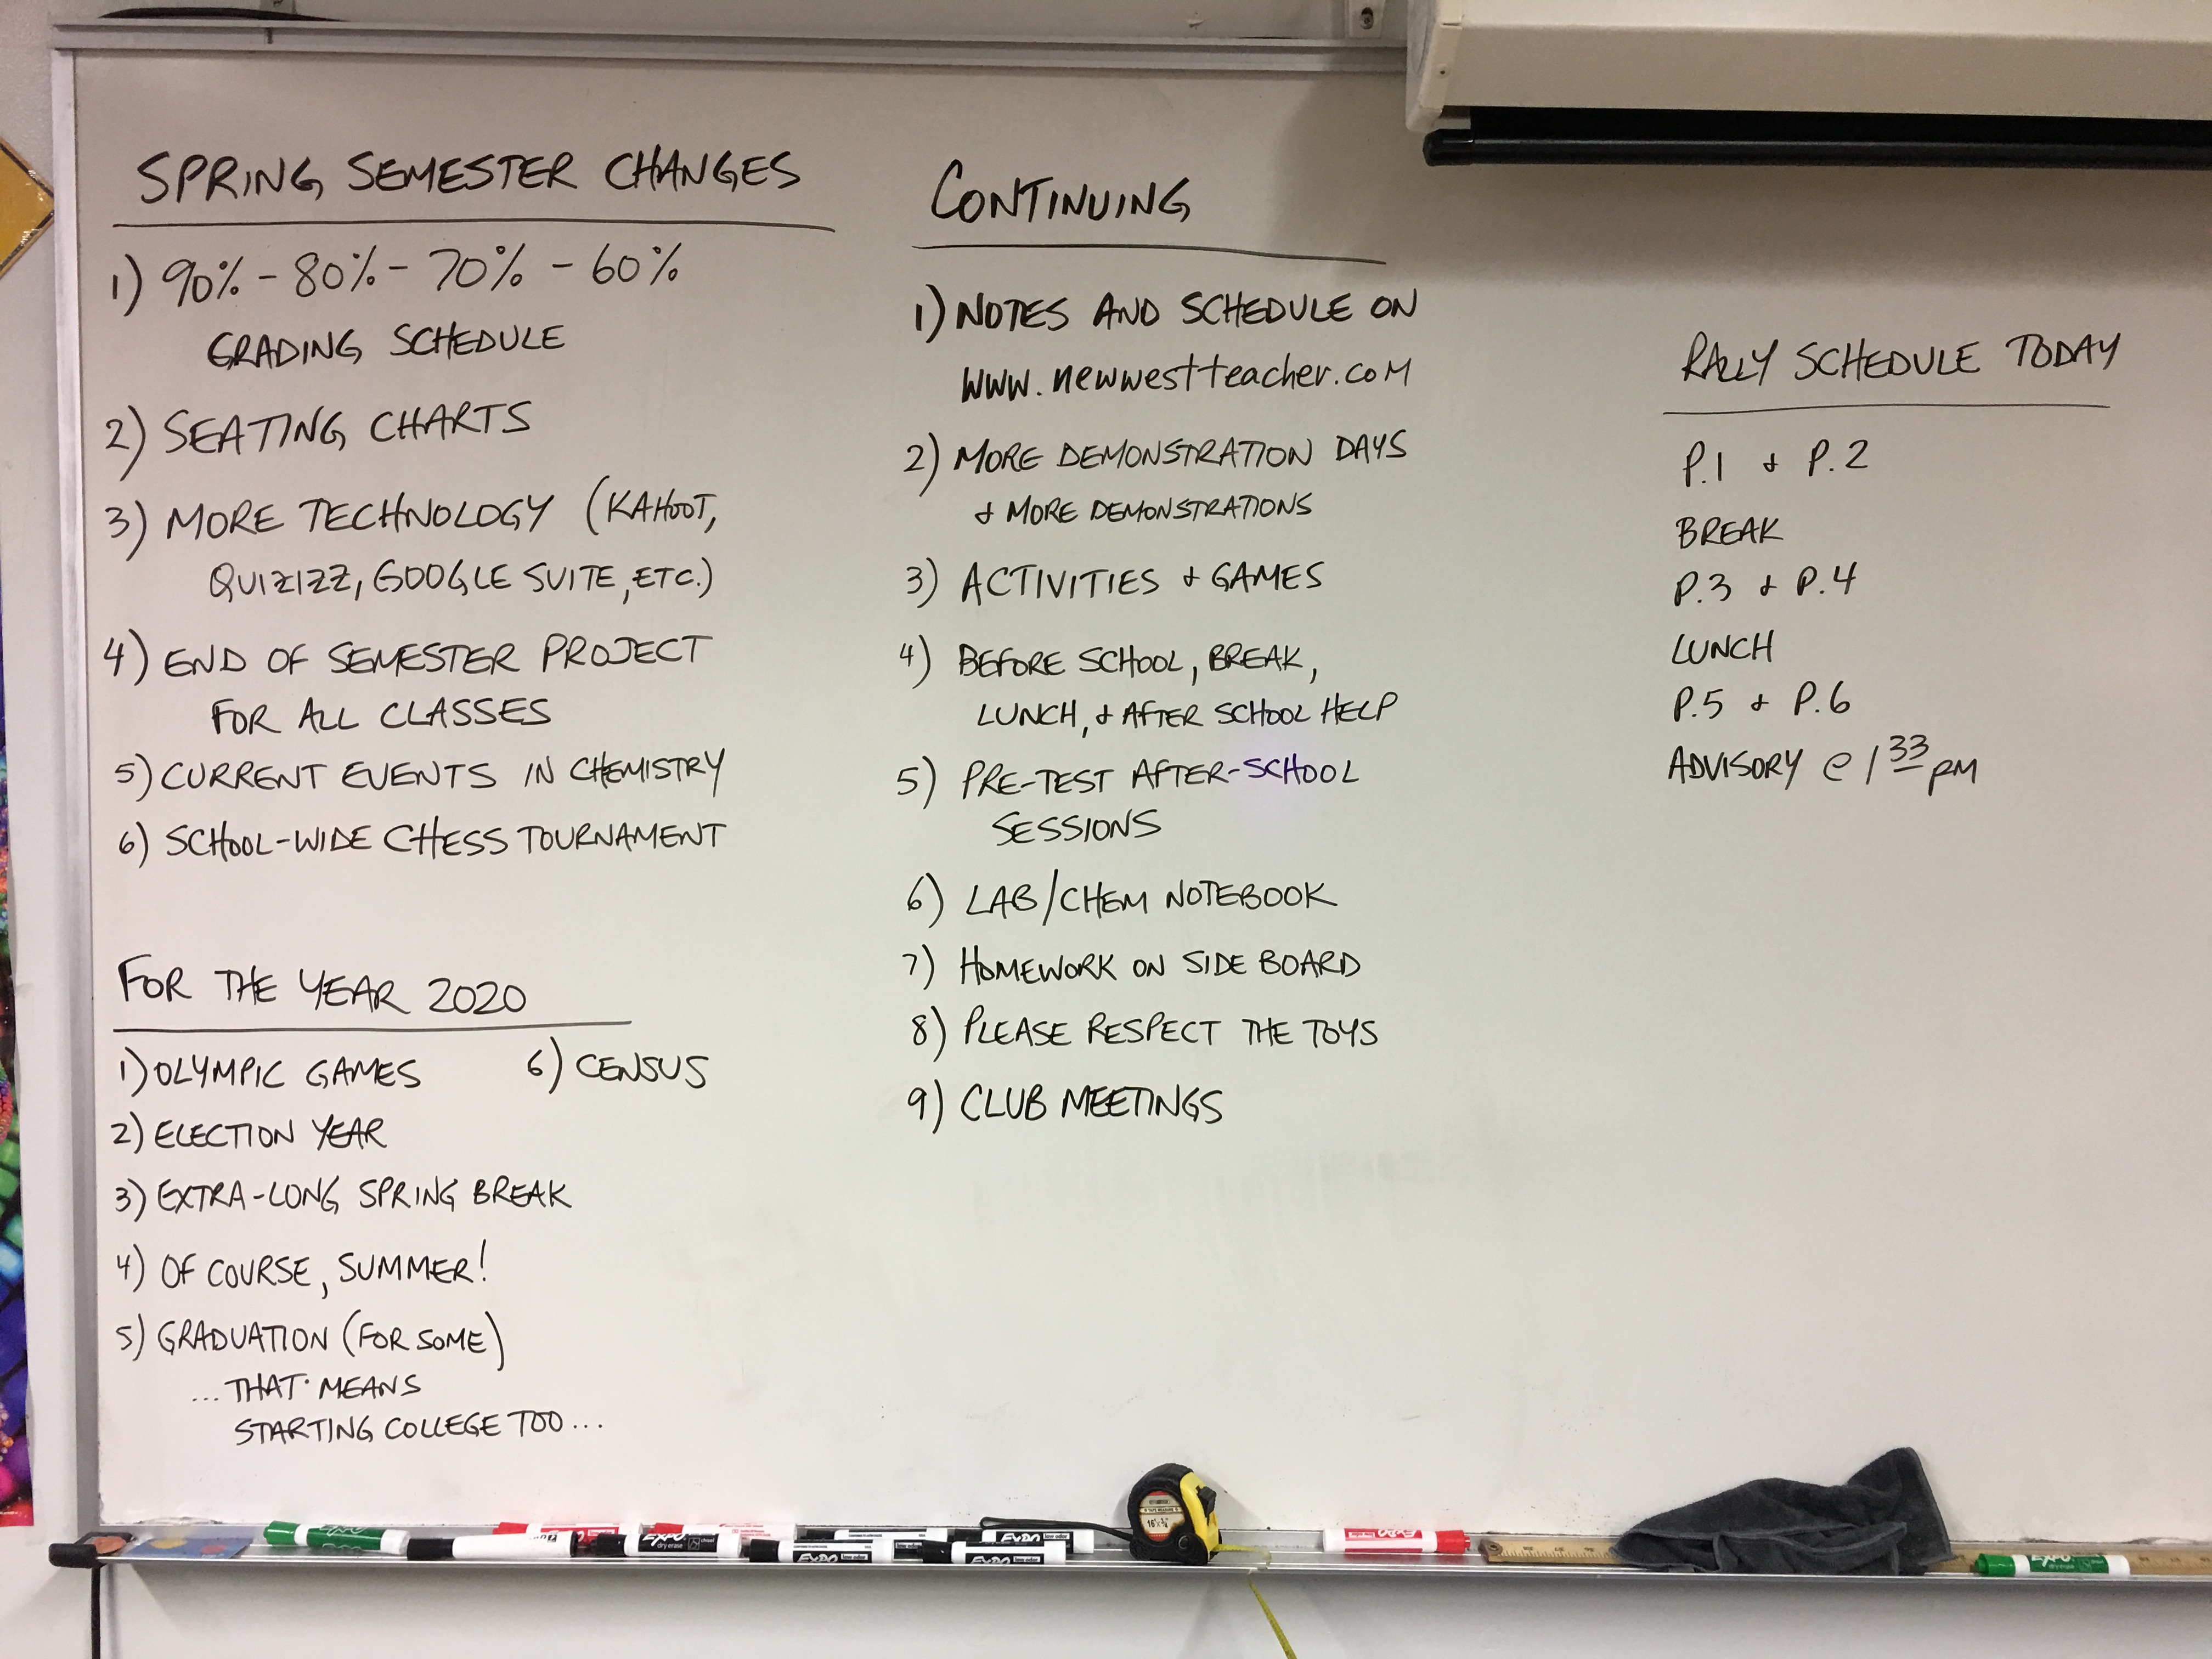 SPRING SEMESTER CHANGES
1) 90% - 80% - 70% - 60%
GRADING SCHEDULE
2) SEATING CHARTS
3) MORE TECHNOLOGY (KAHOOT,
QUIZIZZ, GOOGLE SUITE, ETC.)
4) END OF SEMESTER PROJECT
FOR ALL CLASSES
5) CURRENT EVENTS IN CHEMISTRY
6) SCHOOL-WIDE CHESS TOURNAMENT
FOR THE YEAR 2020
1) OLYMPIC GAMES
2) ELECTION YEAR
3) EXTRA-LONG SPRING BREAK
4) OF COURSE, SUMMER!
5) GRADUATION (FOR SOME)
...THAT MEANS
STARTING COLLEGE TOO...
6) CENSUS
CONTINUING
1) NOTES AND SCHEDULE ON
www.newwestteacher.com
2) MORE DEMONSTRATION DAYS
& MORE DEMONSTRATIONS
3) ACTIVITIES & GAMES
4) BEFORE SCHOOL, BREAK,
LUNCH, & AFTER SCHOOL HELP
5) PRE-TEST AFTER-SCHOOL
SESSIONS
6) LAB/CHEM NOTEBOOK
7) HOMEWORK ON SIDE BOARD
8) PLEASE RESPECT THE TOYS
9) CLUB MEETINGS
RALLY SCHEDULE TODAY
P.1 & P.2
BREAK
P.3 & P.4
LUNCH
P.5 & P.6
ADVISORY @ 1 33 PM
EXPO
dry erase
EXPO
low odor
EXPO
low odor
EXPO
EXPO